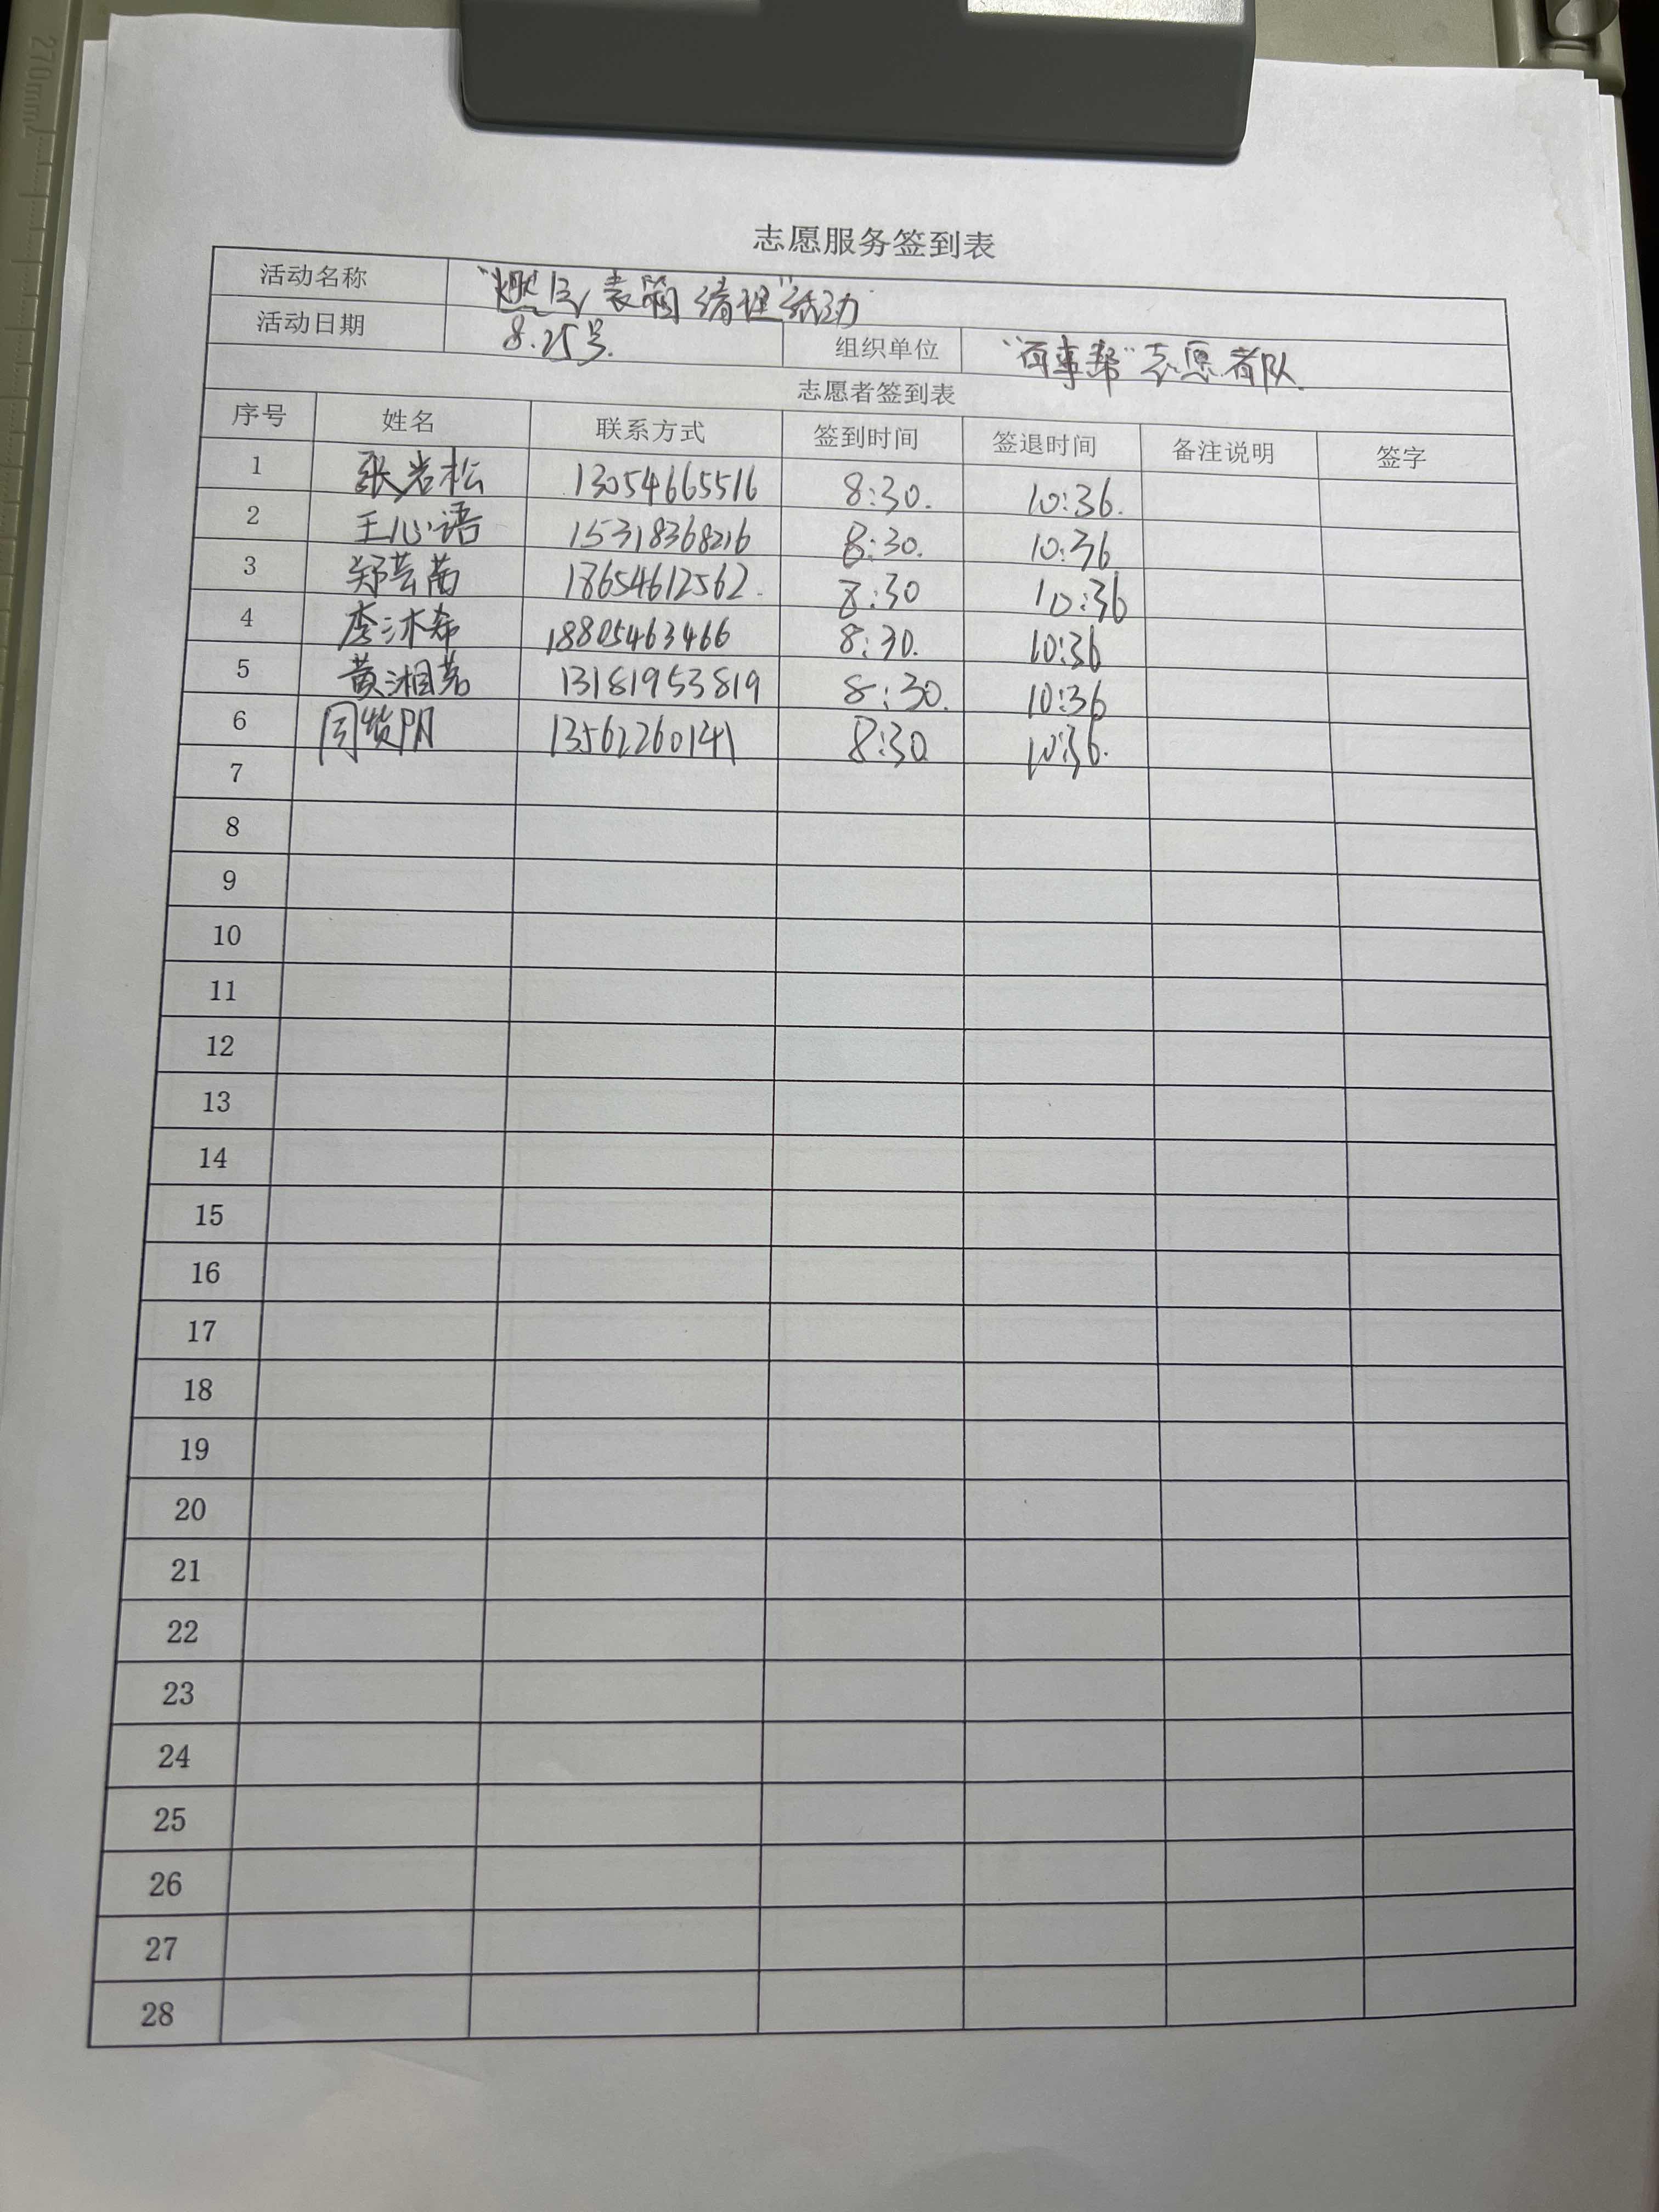 270mm
志愿服务签到表
活动名称 "燃气表箱清理"活动
活动日期 8.25号. 组织单位 "百事帮"志愿者队.
志愿者签到表
序号 姓名 联系方式 签到时间 签退时间 备注说明 签字
1 张岩松 13054665516 8:30. 10:36.
2 王心语 15318368216 8:30. 10:36
3 郑芸茜 18654612562. 8:30 10:36
4 李沐希 18805463466 8:30. 10:36
5 黄湘茗 13181953819 8:30. 10:36
6 13562260141 8:30 10:36.
7
8
9
10
11
12
13
14
15
16
17
18
19
20
21
22
23
24
25
26
27
28